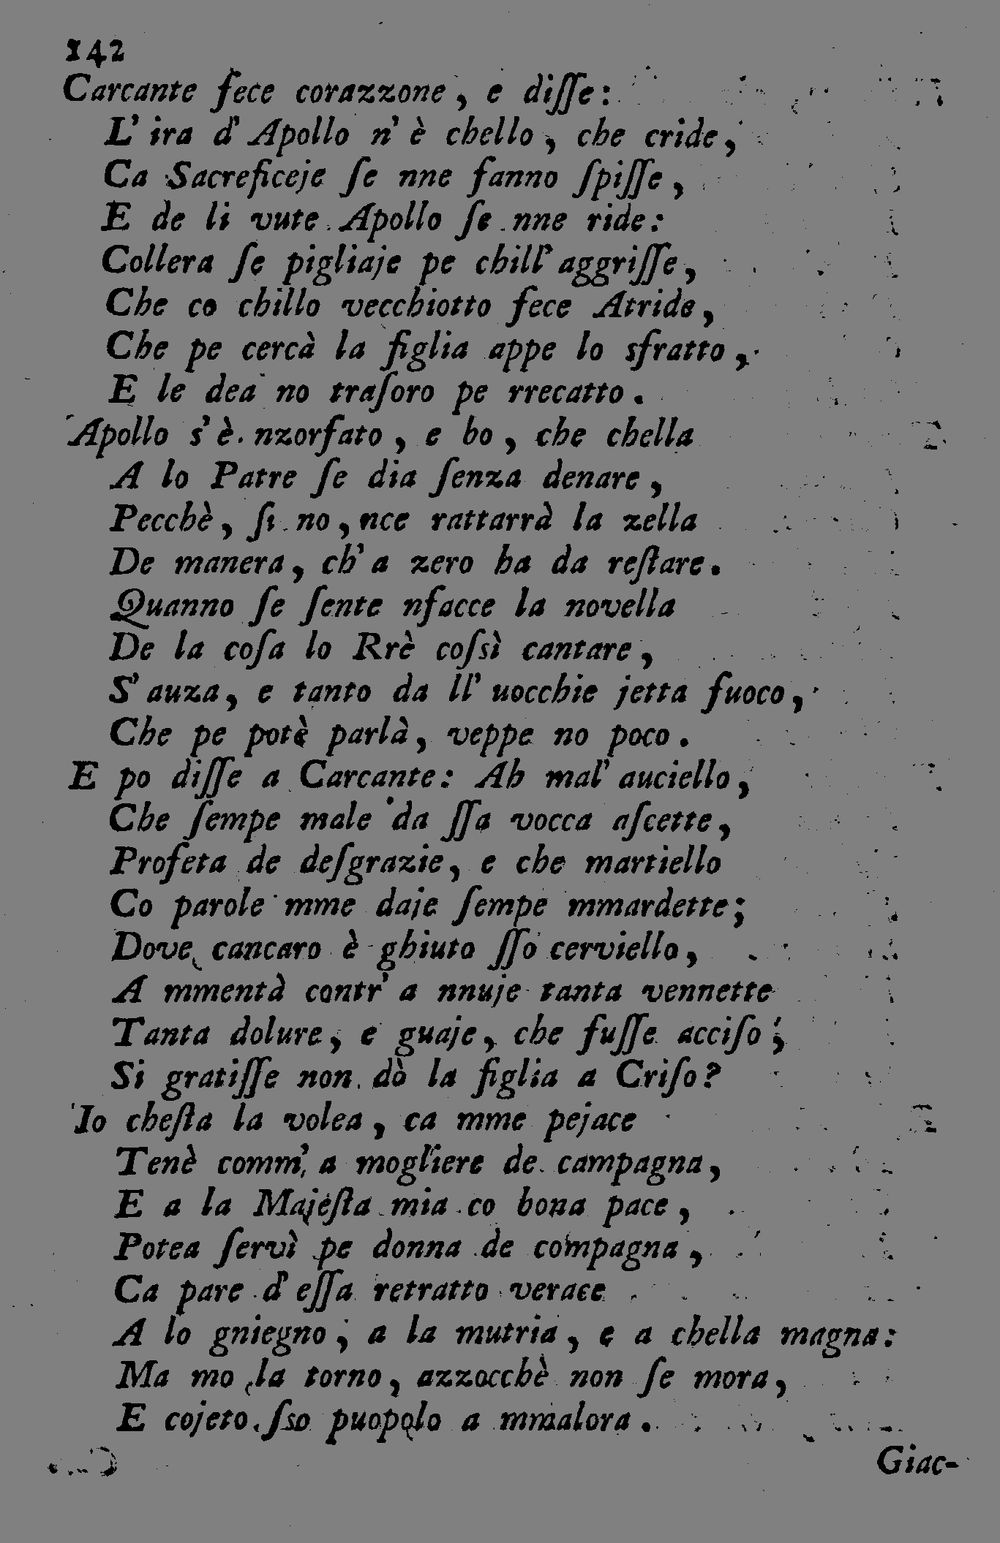 142
Carcante fece corazzone, e disse:
L' ira d' Apollo n' è chello, che cride,
Ca Sacreficeje se nne fanno spisse,
E de li vute Apollo se nne ride:
Collera se pigliaje pe chill' aggrisse,
Che co chillo vecchiotto fece Atride,
Che pe cercà la figlia appe lo sfratto,
E le dea no trasoro pe rrecatto.
Apollo s' è nzorfato, e bo, che chella
A lo Patre se dia senza denare,
Pecchè, si no, nce rattarrà la zella
De manera, ch' a zero ha da restare.
Quanno se sente nfacce la novella
De la cosa lo Rrè cossì cantare,
S' auza, e tanto da ll' uocchie jetta fuoco,
Che pe potè parlà, veppe no poco.
E po disse a Carcante: Ah mal' auciello,
Che sempe male da ssa vocca ascette,
Profeta de desgrazie, e che martiello
Co parole mme daje sempe mmardette;
Dove cancaro è ghiuto sso cerviello,
A mmentà contr' a nnuje tanta vennette
Tanta dolure, e guaje, che fusse acciso,
Si gratisse non dò la figlia a Criso?
Io chesta la volea, ca mme pejace
Tenè comm' a mogliere de campagna,
E a la Majesta mia co bona pace,
Potea servì pe donna de compagna,
Ca pare d' essa retratto verace
A lo gniegno, a la mutria, e a chella magna:
Ma mo la torno, azzocchè non se mora,
E cojeto sso puopolo a mmalora.
Giac-